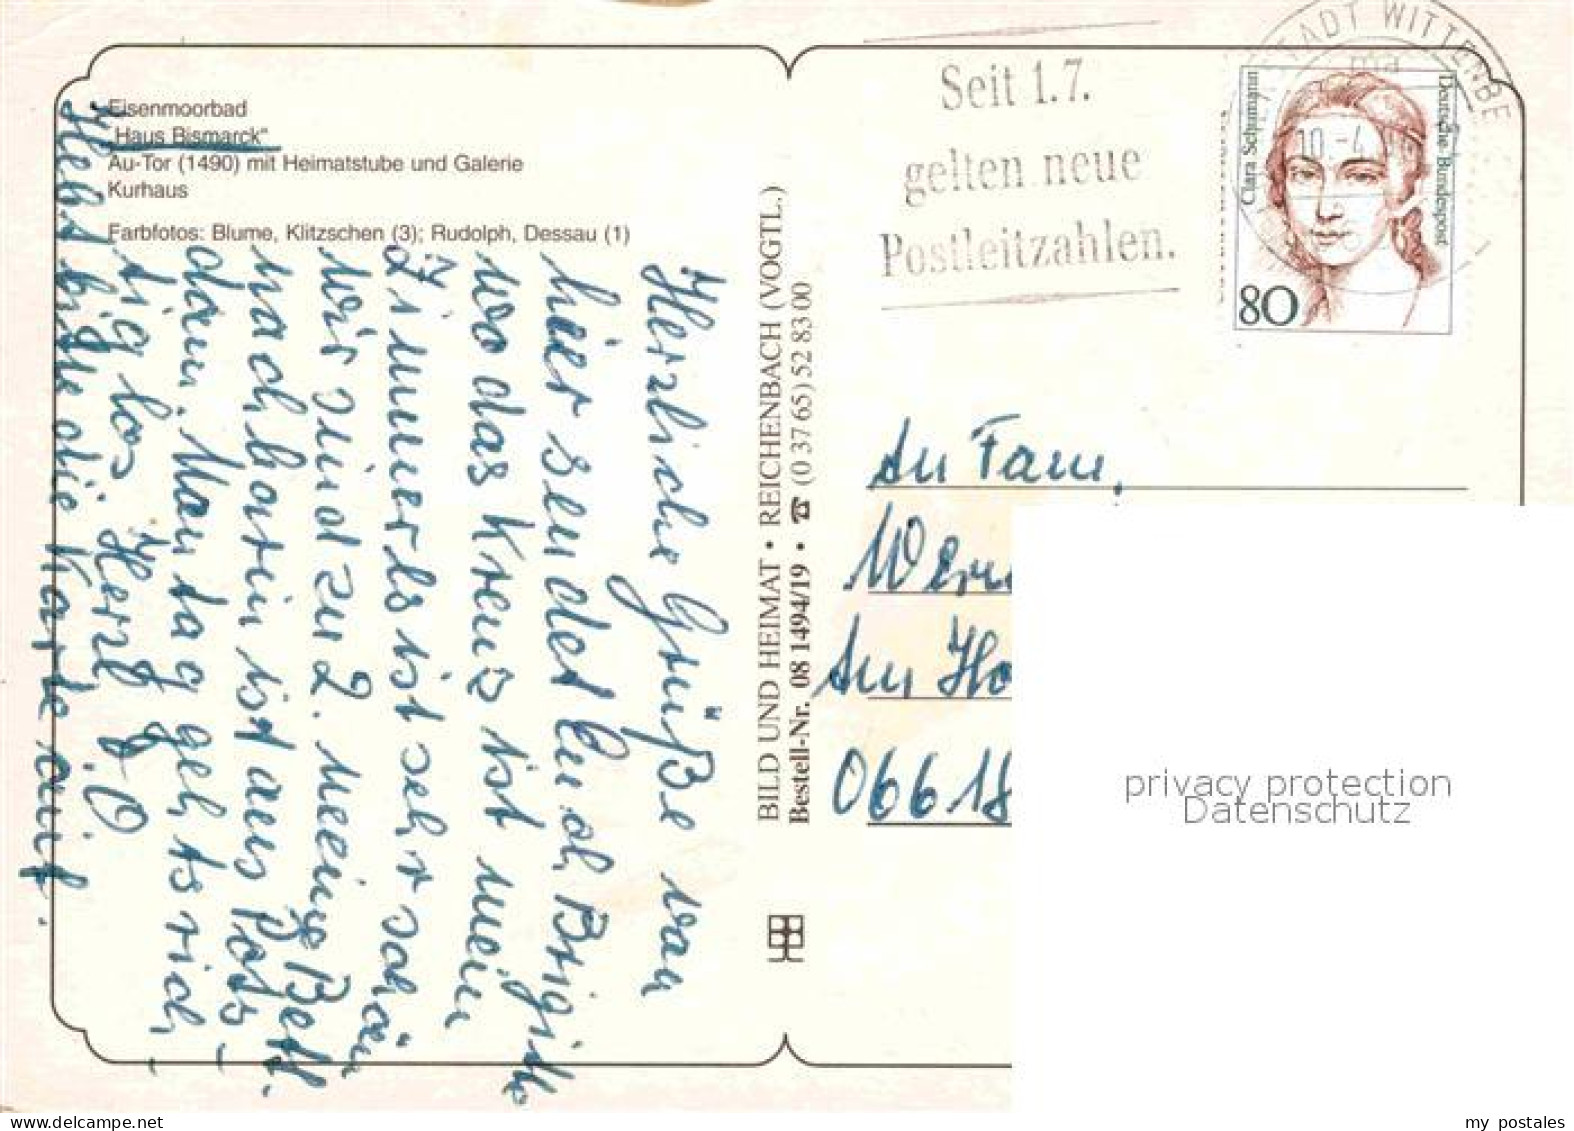 Eisenmoorbad
„Haus Bismarck“
Au-Tor (1490) mit Heimatstube und Galerie
Kurhaus
Farbfotos: Blume, Klitzschen (3); Rudolph, Dessau (1)
Herzliche Grüße von
hier sendet Euch Brigitte
wo das Kreuz ist mein
Zimmer. Es ist sehr schön
wir sind zu 2. meine Bett-
nachbarin ist aus Pots-
dam. Montag geht's rich-
tig los Herzl
Hebt bitte die Karte auf.
BILD UND HEIMAT • REICHENBACH (VOGTL.)
Bestell-Nr. 08 1494/19 • ☎ (0 37 65) 52 83 00
Seit 1.7.
gelten neue
Postleitzahlen.
STADT WITTENBE
ma
10.-4
Clara Schumann
Deutsche Bundespost
80
An Fam.
Wern
Am Ho
06618
privacy protection
Datenschutz
my postales
www.delcampe.net